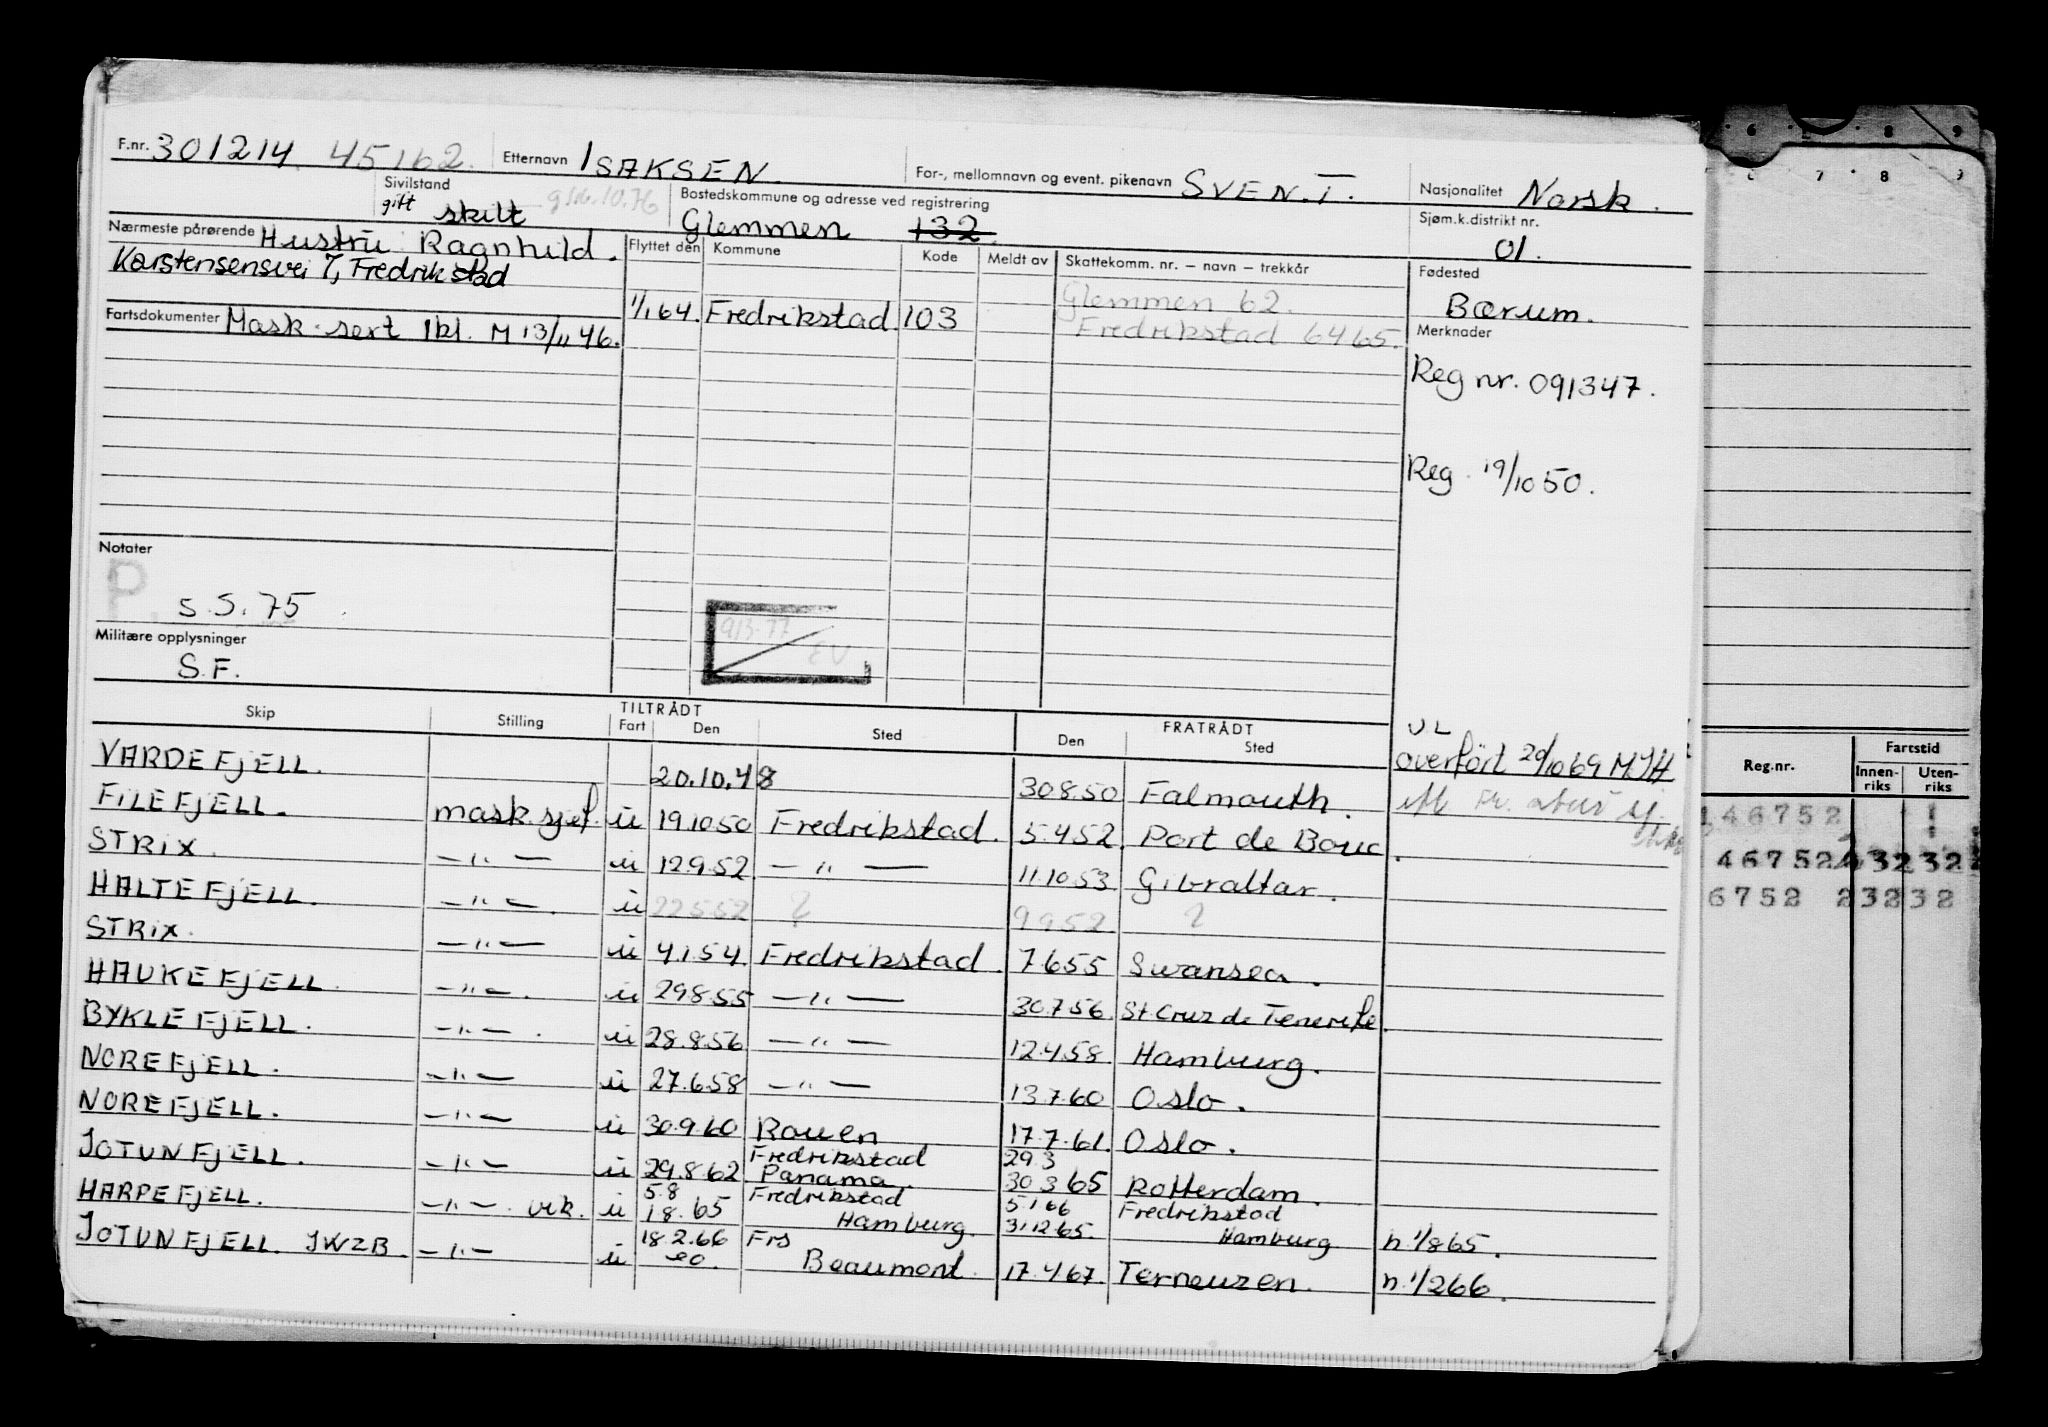 F.nr. 301214 45162 Etternavn ISAKSEN For-, mellomnavn og event. pikenavn SVEN.T. Nasjonalitet Norsk.
Sivilstand gift skilt Bostedskommune og adresse ved registrering Glemmen 132 Sjøm.k.distrikt nr. 01.
Nærmeste pårørende Hustru Ragnhild.
Karstensensvei 7, Fredrikstad
Flyttet den Kommune Kode Meldt av Skattekomm. nr. – navn – trekkår Fødested
Glemmen 62. Bærum.
Fartsdokumenter Mask.sert 1kl. M 13/11 46. 1/1 64. Fredrikstad 103 Fredrikstad 64 65. Merknader
Reg nr. 091347.
Reg. 19/10 50.
Notater
P.
S.S.75
Militære opplysninger
S.F.
9/3-77
EV
Skip Stilling TILTRÅDT Fart Den Sted FRATRÅDT Den Sted
overført 29/10 69 MJH
VARDEFJELL. 20.10.48 30.8.50 Falmouth.
FILEFJELL. mask.sjef. u 19.10.50 Fredrikstad. 5.4.52. Port de Bouc.
STRIX. —"— u 12.9.52 —"— 11.10.53 Gibraltar.
HALTEFJELL. —"—. u 22.5.52 ? 9.9.52 ?
STRIX. —"— u 4.1.54. Fredrikstad. 7.6.55 Swansea.
HAUKEFJELL. —"—. u 29.8.55 —"— 30.7.56. St Cruz de Tenerife.
BYKLEFJELL. —"—. u 28.8.56 —"— 12.4.58. Hamburg.
NOREFJELL. —"— u 27.6.58 —"— 13.7.60 Oslo.
NOREFJELL. —"— u 30.9.60 Rouen 17.7.61. Oslo.
JOTUNFJELL. —"— u 29.8.62 Fredrikstad Panama. 29.3 30.3 65 Rotterdam.
HARPEFJELL. —"—. vik. u 5.8 1.8.65 Fredrikstad Hamburg. 5.1.66 31.12.65. Fredrikstad Hamburg n. 1/8 65.
JOTUNFJELL. JWZB. —"— u 18.2.66 20. Frs Beaumont. 17.4.67. Terneuzen. n. 1/2 66.
6 8 9
7 8 9
Reg.nr. Fartstid
Innenriks Utenriks
146752
46752 232 32
6752 232 32